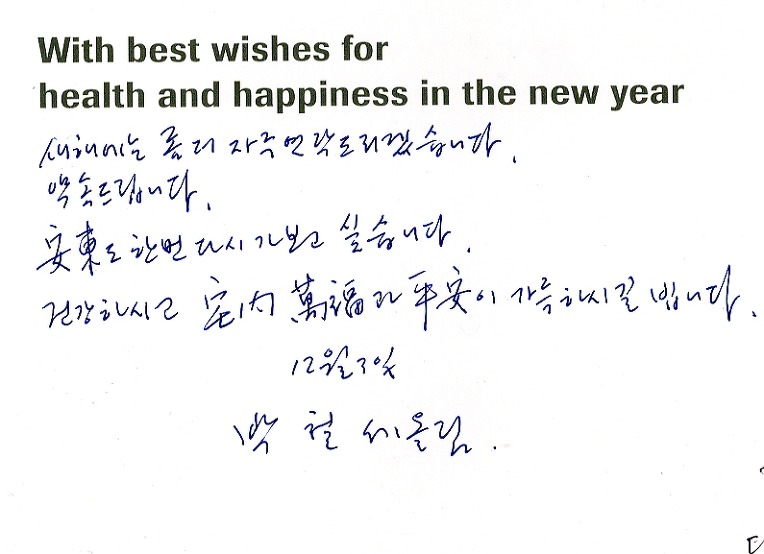 With best wishes for
health and happiness in the new year
새해에는 좀 더 자주 연락드리겠습니다.
약속드립니다.
安東도 한번 다시 가보고 싶습니다.
건강하시고 宅內 萬福과 平安이 가득하시길 빕니다.
12월 3일
박 철 세 올림.